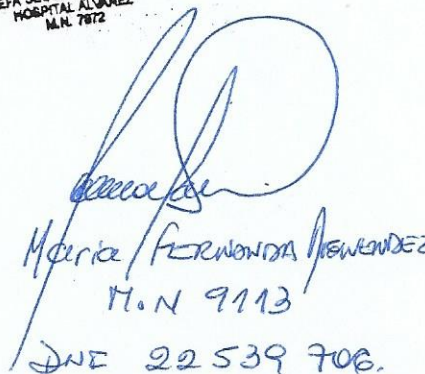 HOSPITAL ALVAREZ
M.N. 7872
Maria FERNANDA MENENDEZ
M.N 9113
DNI 22 539 706.